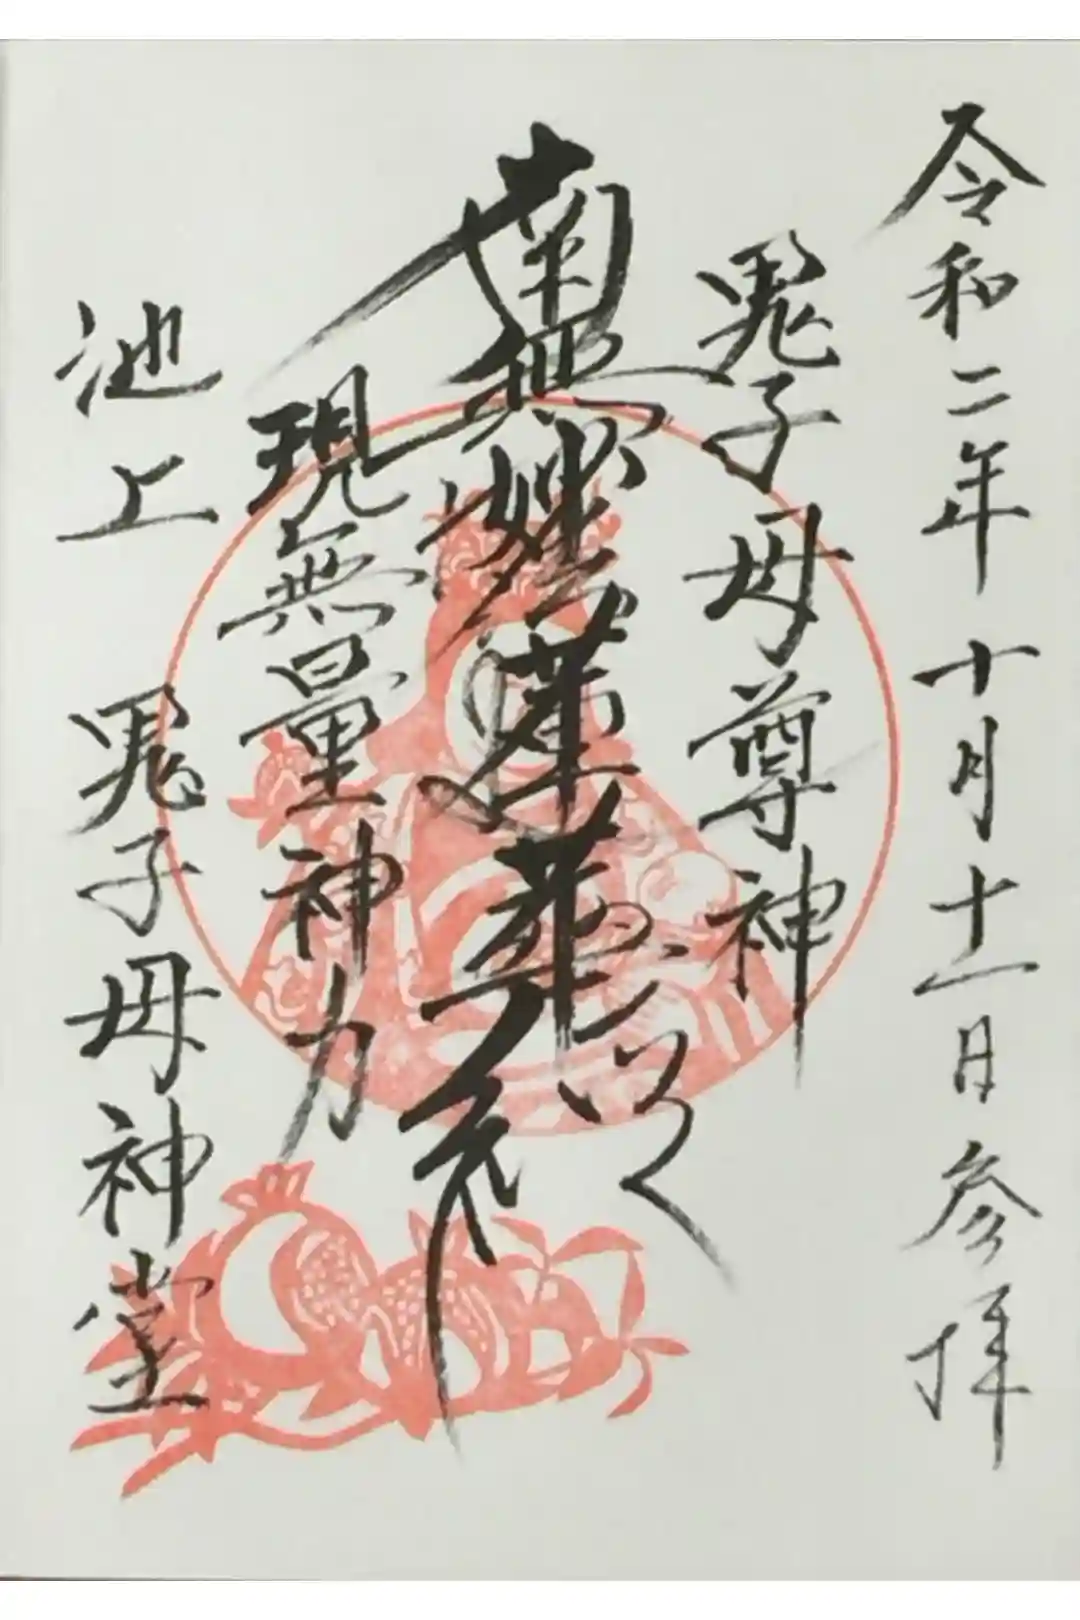 令和二年 十月十一日 参拝
鬼子母尊神
南無妙法蓮華経
現無量神力
池上 鬼子母神堂